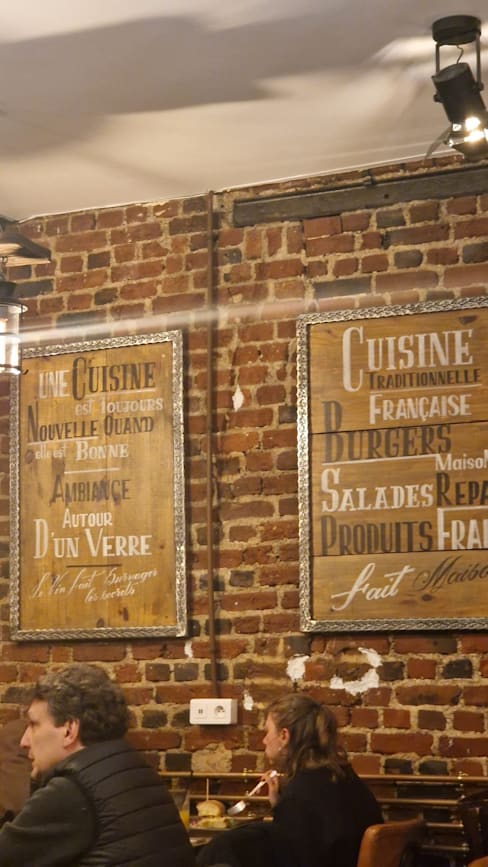 UNE CUISINE
EST TOUJOURS
NOUVELLE QUAND
elle est BONNE
AMBIANCE
AUTOUR
D'UN VERRE
les secrets
CUISINE
TRADITIONNELLE
FRANÇAISE
BURGERS
MAISON
SALADES REPA
PRODUITS FRAI
fait Maison